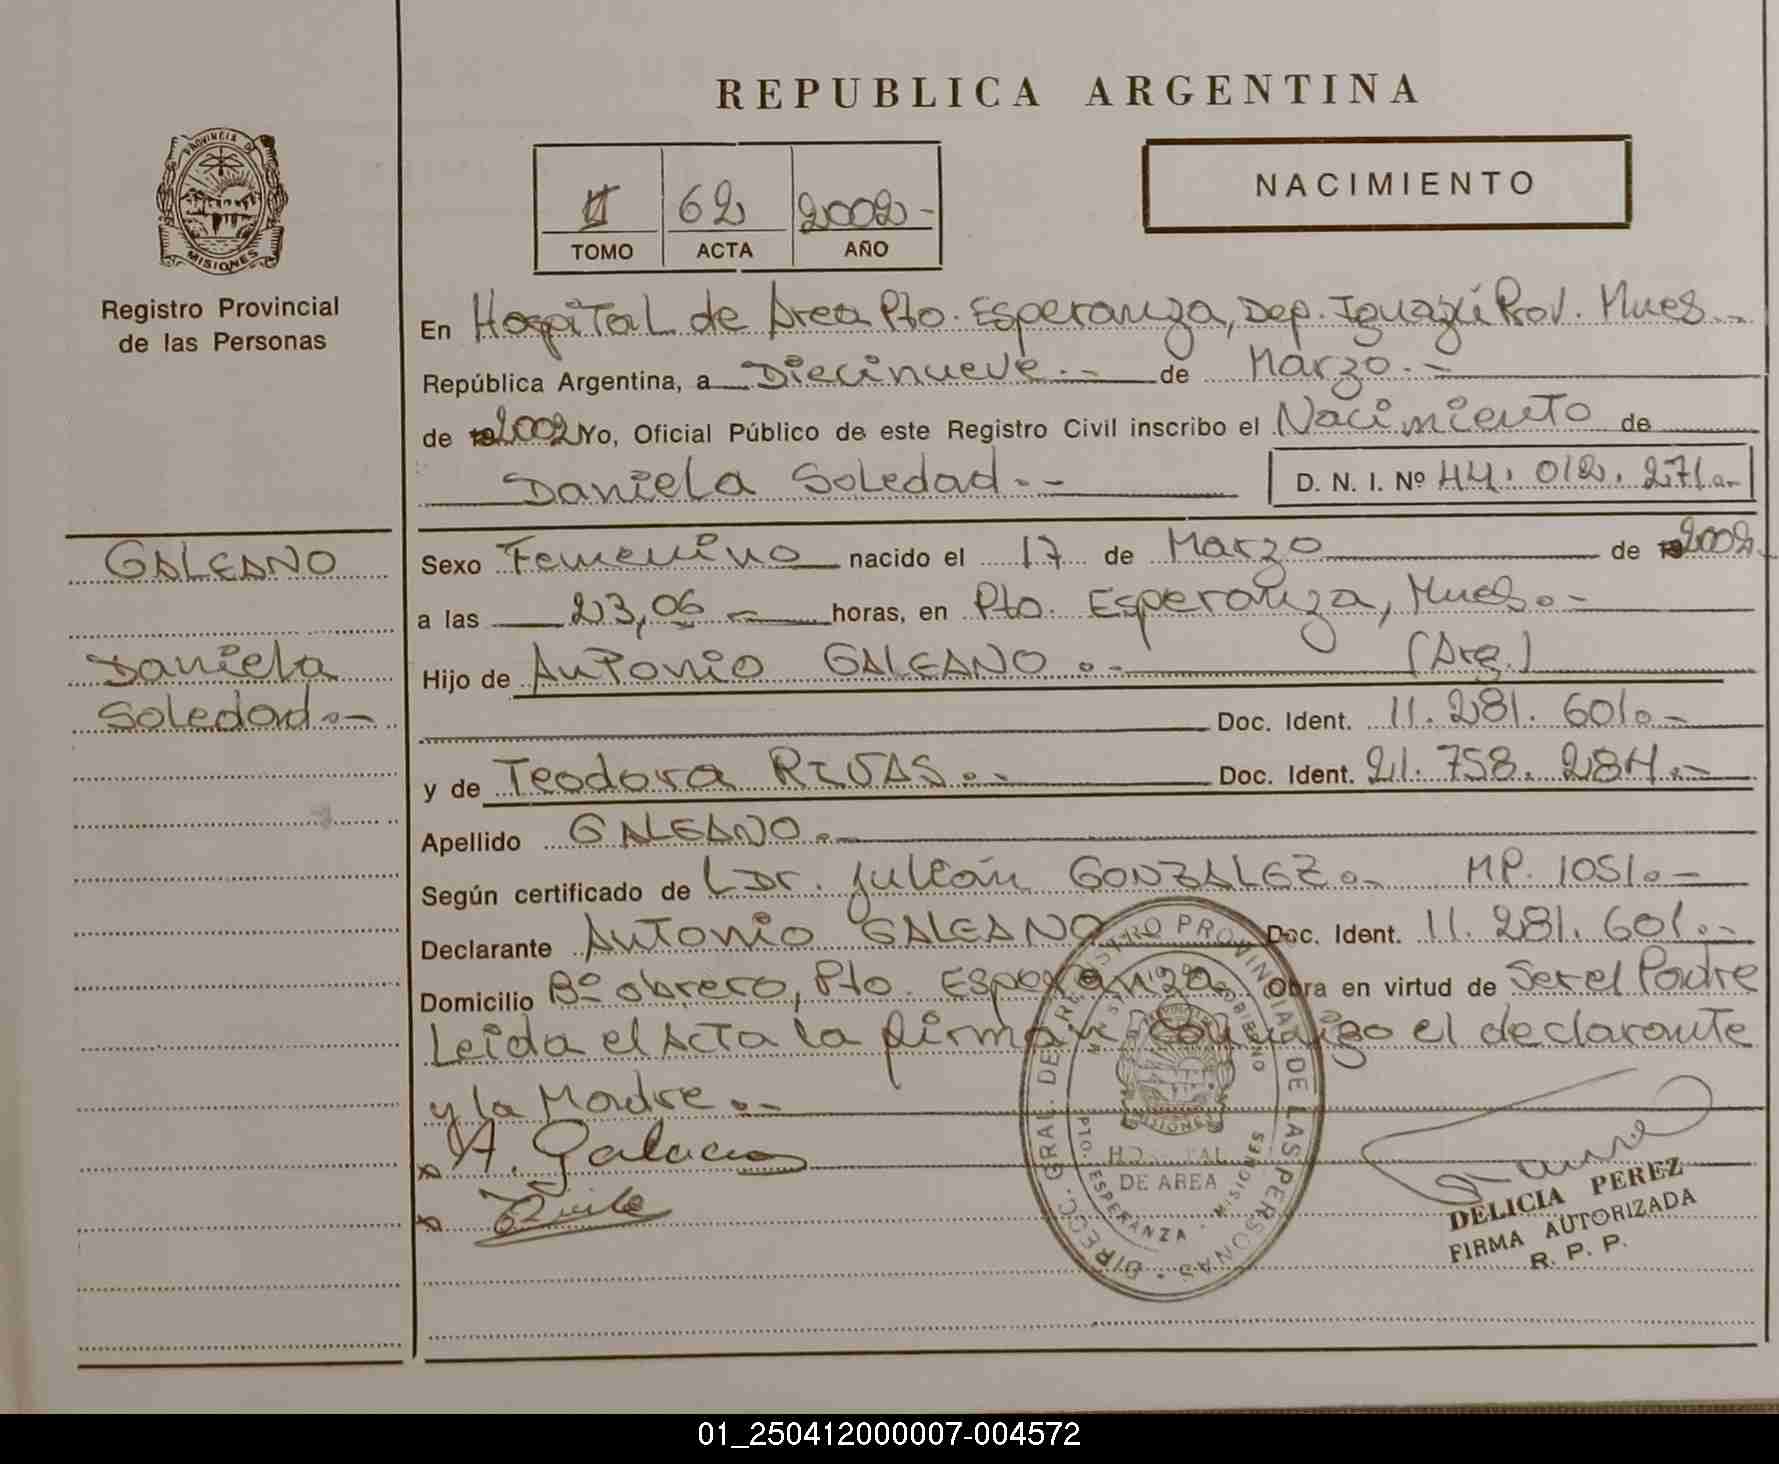 REPUBLICA ARGENTINA
NACIMIENTO
II 62 2002-
TOMO ACTA AÑO
PROVINCIA DE
MISIONES
Registro Provincial
de las Personas
En Hospital de Area Pto. Esperanza, Dep. Iguazú Prov. Mnes.-
República Argentina, a Diecinueve.- de Marzo.-
de 2002 Yo, Oficial Público de este Registro Civil inscribo el Nacimiento de
Daniela Soledad.- D. N. I. Nº 44.012.271.-
GALEANO
Daniela
Soledad.-
Sexo Femenino nacido el 17 de Marzo de 2002.
a las 23,06 horas, en Pto. Esperanza, Mnes.-
Hijo de Antonio GALEANO.- (Arg.)
Doc. Ident. 11.281.601.-
y de Teodora RIVAS.- Doc. Ident. 21.758.284.-
Apellido GALEANO.-
Según certificado de Dr. Julián GONZALEZ.- MP. 1051.-
Declarante Antonio GALEANO Doc. Ident. 11.281.601.-
Domicilio Bº obrero, Pto. Esperanza Obra en virtud de Ser el Padre
Leida el Acta la firman conmigo el declarante
y la Madre.-
A. Galeano
DIRECC. GRAL. DE REGISTRO PROVINCIAL DE LAS PERSONAS
MISIONES
HOSPITAL
DE AREA
PTO. ESPERANZA - MISIONES
DELICIA PEREZ
FIRMA AUTORIZADA
R. P. P.
01_250412000007-004572